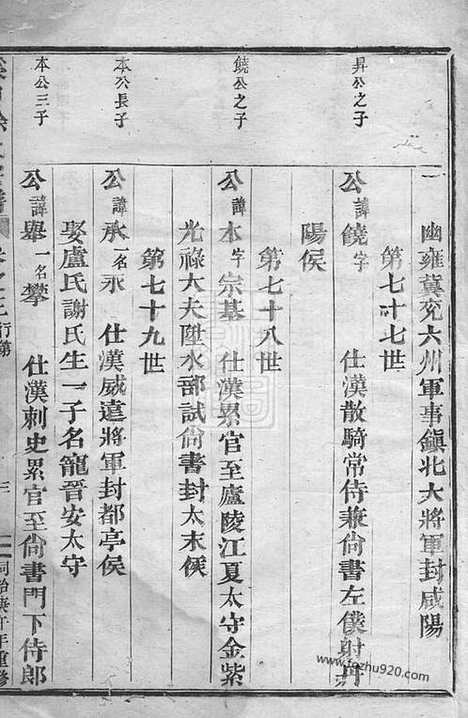 幽雍冀兖六州軍事鎮北大將軍封咸陽
第七十七世
昇公之子
公諱饒字 仕漢散騎常侍兼尙書左僕射丹
陽侯
第七十八世
饒公之子
公諱本字宗基 仕漢累官至廬陵江夏太守金紫
光祿大夫陞水部試尙書封太末侯
第七十九世
本公長子
公諱承一名永 仕漢威遠將軍封都亭侯
娶盧氏謝氏生一子名寵晉安太守
本公三子
公諱舉一名攀 仕漢刺史累官至尙書門下侍郎
行第
三
同治庚午年重修
www.fozhu920.com